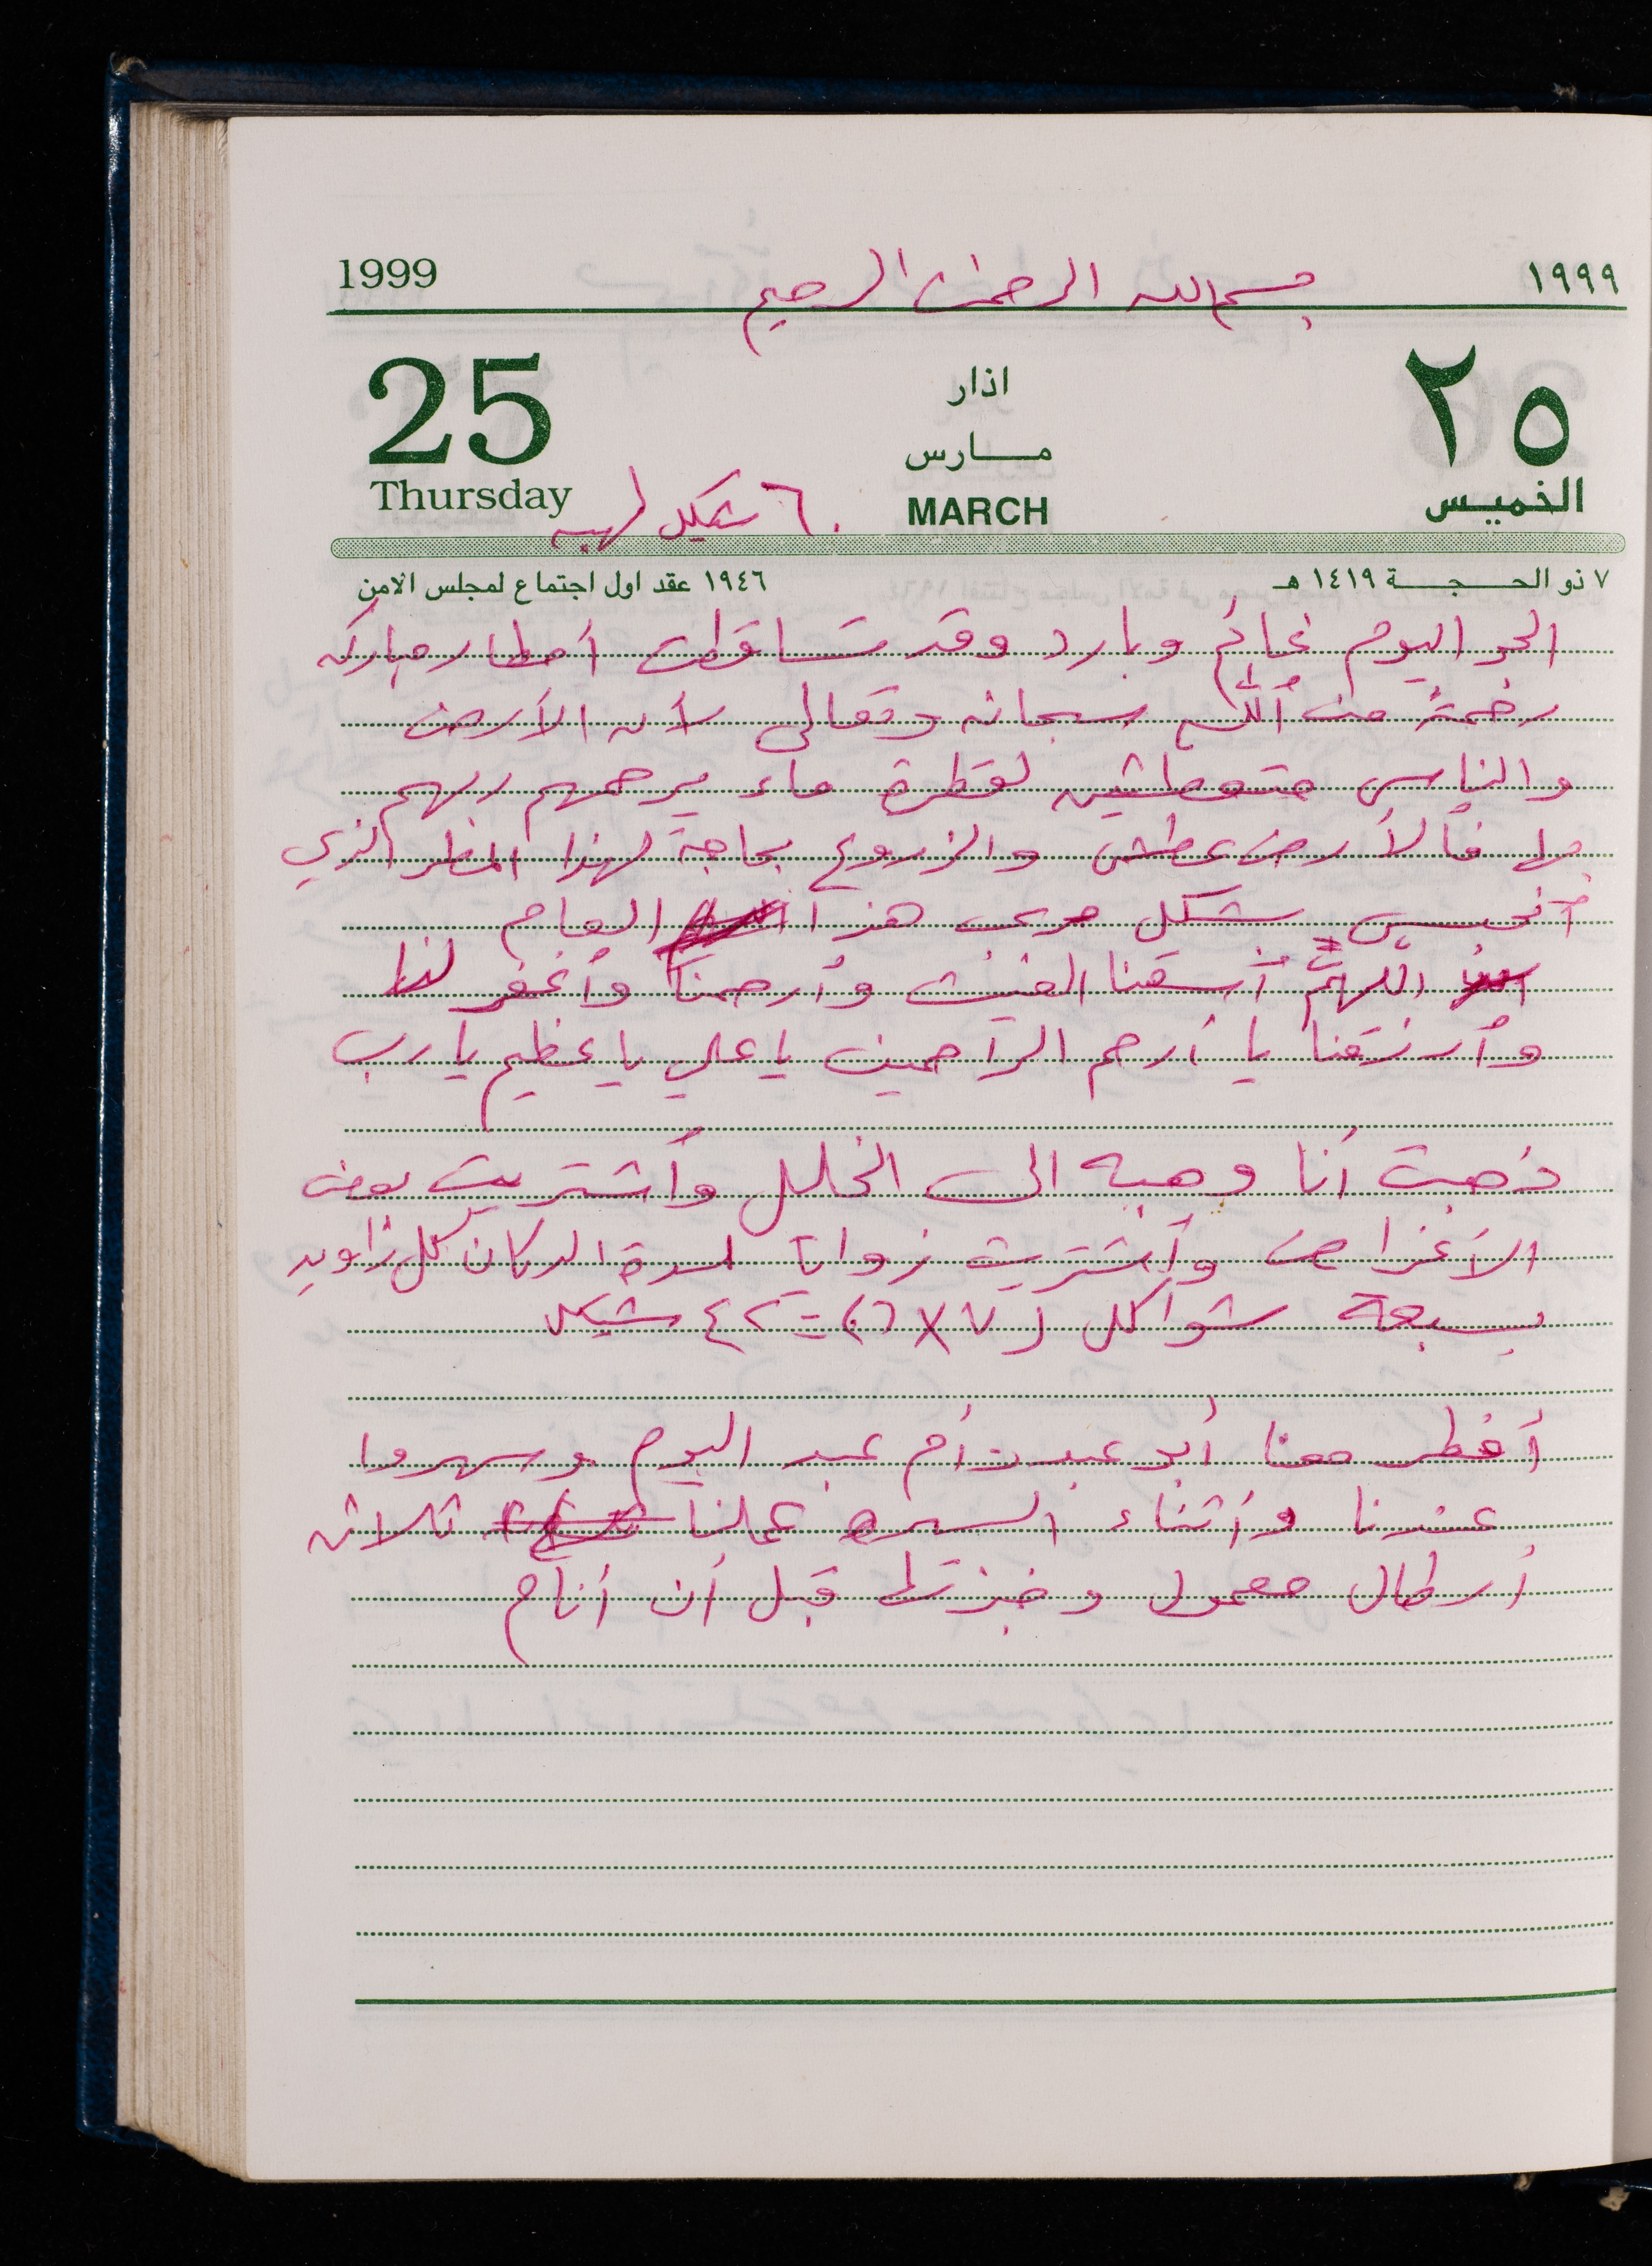 1999 بسم الله الرحمن الرحيم ١٩٩٩
25 اذار ٢٥
مارس
Thursday ٦٠ شيكل لهبه MARCH الخميس
١٩٤٦ عقد اول اجتماع لمجلس الامن ٧ ذو الحجة ١٤١٩ هـ
الجو اليوم غائم وبارد وقد تساقطت أمطار مباركه
رحمةً من اللّه سبحانه وتعالى لأن الأرض
والناس متعطشين لقطرة ماء يرحمهم ربهم
بها فألأرض عطشى والزروع بحاجة لهذا المطر الذي
أنحبس بشكل مرعب هذا العام
اللهمَّ أسقنا الغيث وأرحمنا وأغفر لنا
وأرزقنا يا أرحم الراحمين يا علي يا عظيم يا رب
ذهبت أنا وهبه الى الخليل وأشتريت بعض
الأغراض وأشتريت زوايا لسدة الدكان كل زاويه
بسبعة شواكل (٧ × ٦) = ٤٢ شيكل
أفطر معنا أبو عبد وأم عبد اليوم وسهروا
عندنا وأثناء السهره عملنا ثلاثه
أرطال معمول وخبزتها قبل أن أنام